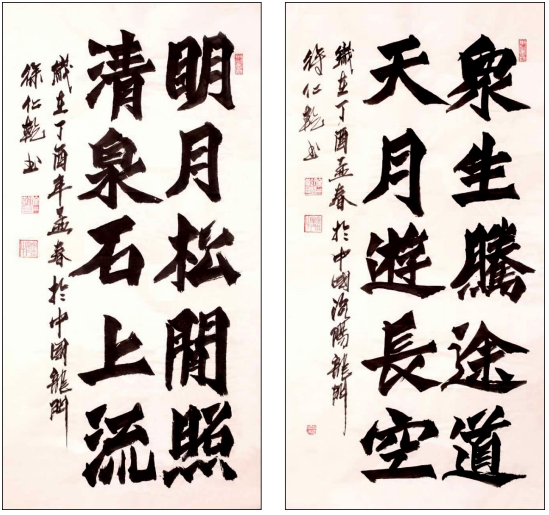 明月松閒照
清泉石上流
歲在丁酉年孟春於中國龍門
徐仁乾书
眾生騰途道
天月遊長空
歲在丁酉孟春於中國洛陽龍門
徐仁乾书